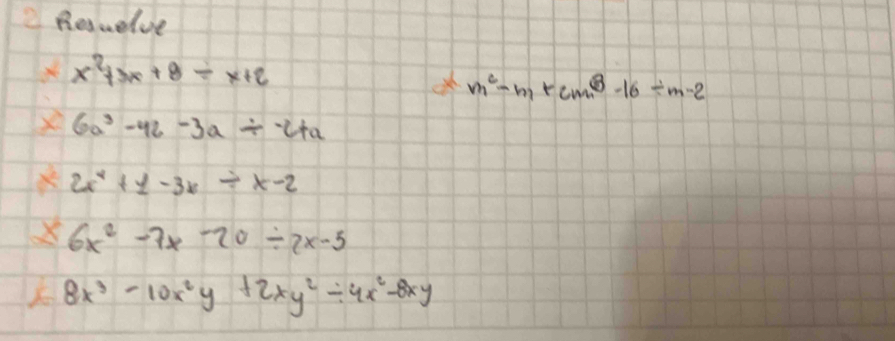 2 Resuelve
x² + 3x + 8 ÷ x+2
m² - m + 2m³ - 16 ÷ m-2
6a³ - 42 - 3a ÷ -2+a
2x⁴ + 1 - 3x ÷ x-2
6x² - 7x - 20 ÷ 2x-5
8x³ - 10x²y + 2xy² ÷ 4x² - 8xy